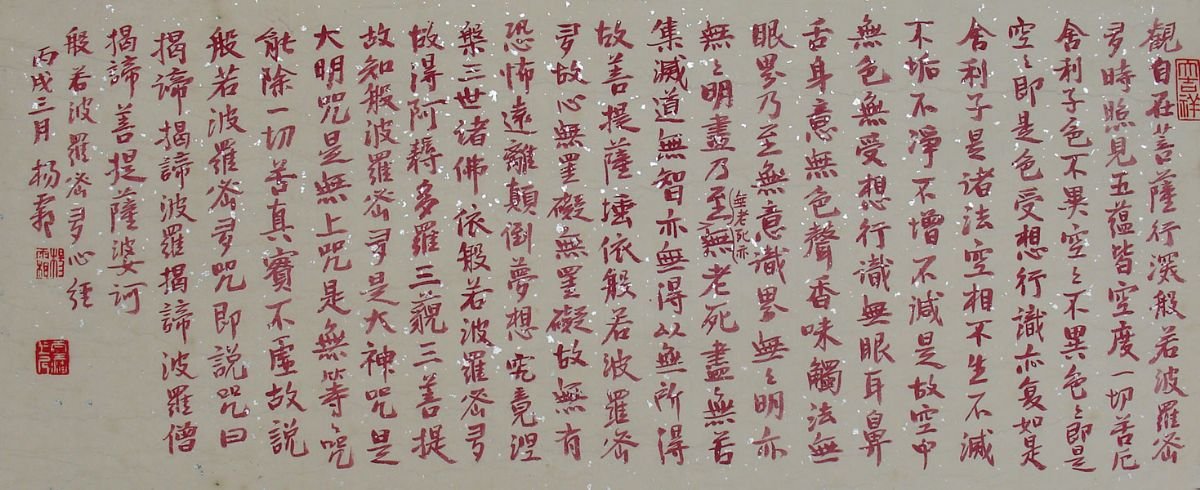 觀自在菩薩行深般若波羅密
多時照見五蘊皆空度一切苦厄
舍利子色不異空〻不異色〻即是
空〻即是色受想行識亦复如是
舍利子是诸法空相不生不滅
不垢不淨不增不減是故空中
無色無受想行識無眼耳鼻
舌身意無色聲香味觸法無
眼界乃至無意識界無〻明亦
無〻明盡乃至(無老死亦)無老死盡無苦
集滅道無智亦無得以無所得
故菩提薩埵依般若波羅密
多故心無罣礙無罣礙故無有
恐怖遠離顛倒夢想究竟涅
槃三世诸佛依般若波羅密多
故得阿耨多羅三藐三菩提
故知般波羅密多是大神咒是
大明咒是無上咒是無等咒
能除一切苦真實不虛故說
般若波羅密多咒即說咒曰
揭諦揭諦波羅揭諦波羅僧
揭諦菩提薩婆訶
般若波羅密多心經
丙戌三月楊霜